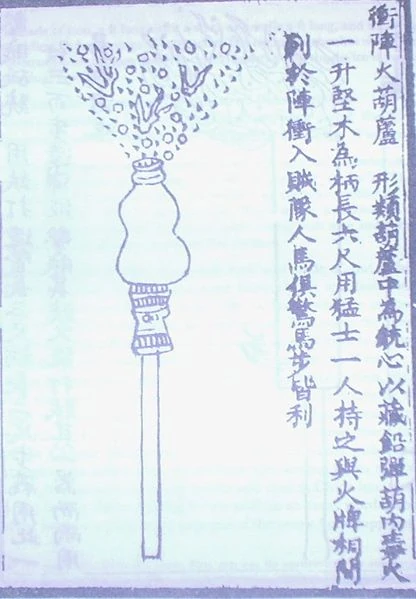 衝陣火葫蘆　形類葫蘆中為銃心以藏鉛彈葫內毒火
一升堅木為柄長六尺用猛士一人持之與火牌相間
列於陣衝入賊隊人馬俱驚馬步皆利